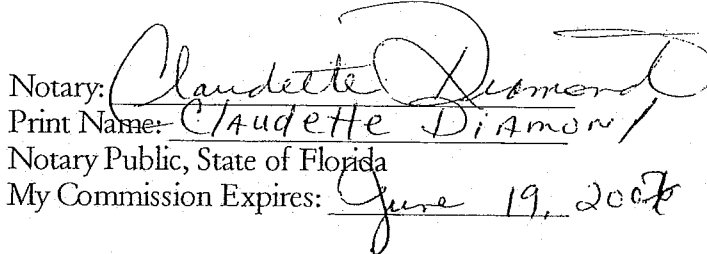 Notary: Claudette Diamond
Print Name: Claudette Diamond
Notary Public, State of Florida
My Commission Expires: June 19,